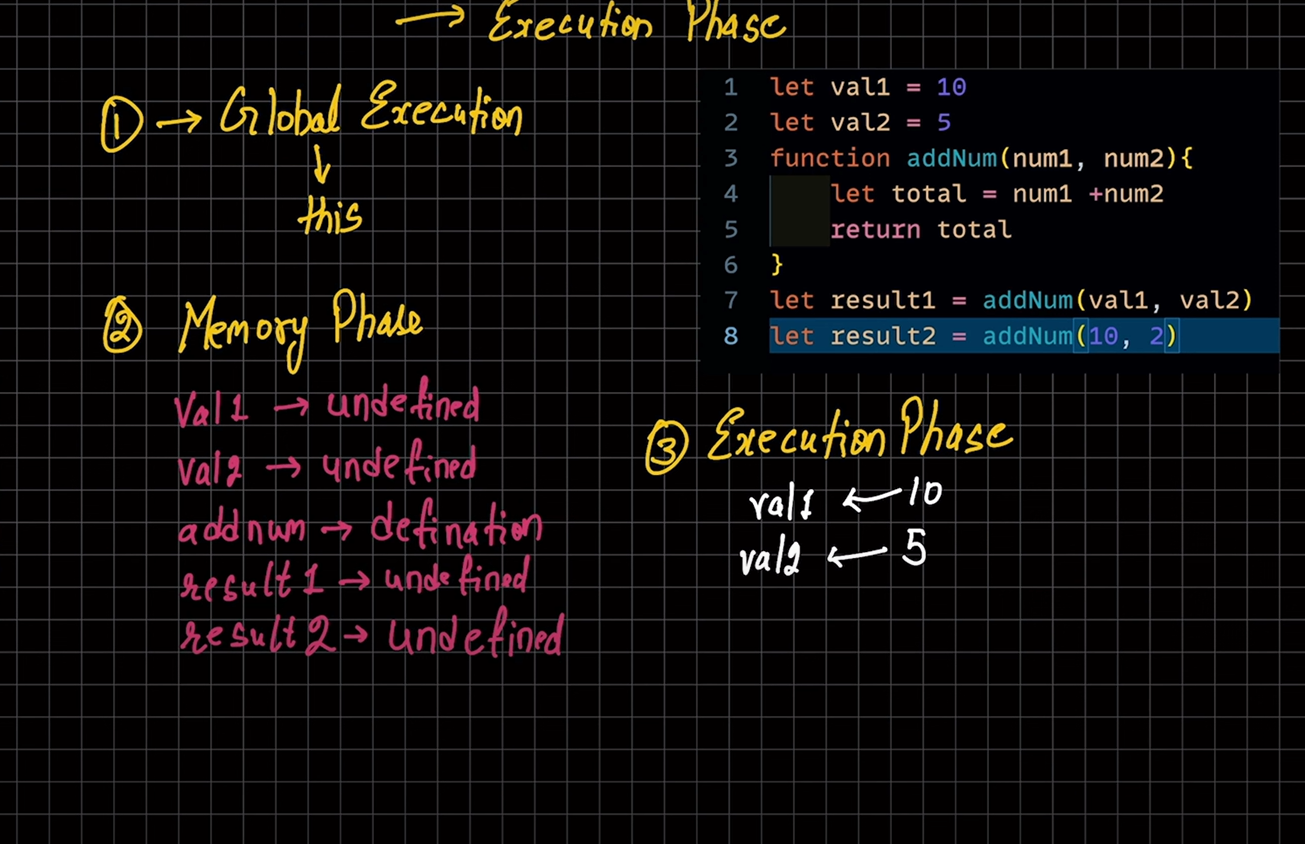 → Execution Phase
① → Global Execution
↓
this
② Memory Phase
Val1 → undefined
val2 → undefined
addnum → defination
result1 → undefined
result2 → undefined
1 let val1 = 10
2 let val2 = 5
3 function addNum(num1, num2){
4 let total = num1 +num2
5 return total
6 }
7 let result1 = addNum(val1, val2)
8 let result2 = addNum(10, 2)
③ Execution Phase
val1 ← 10
val2 ← 5